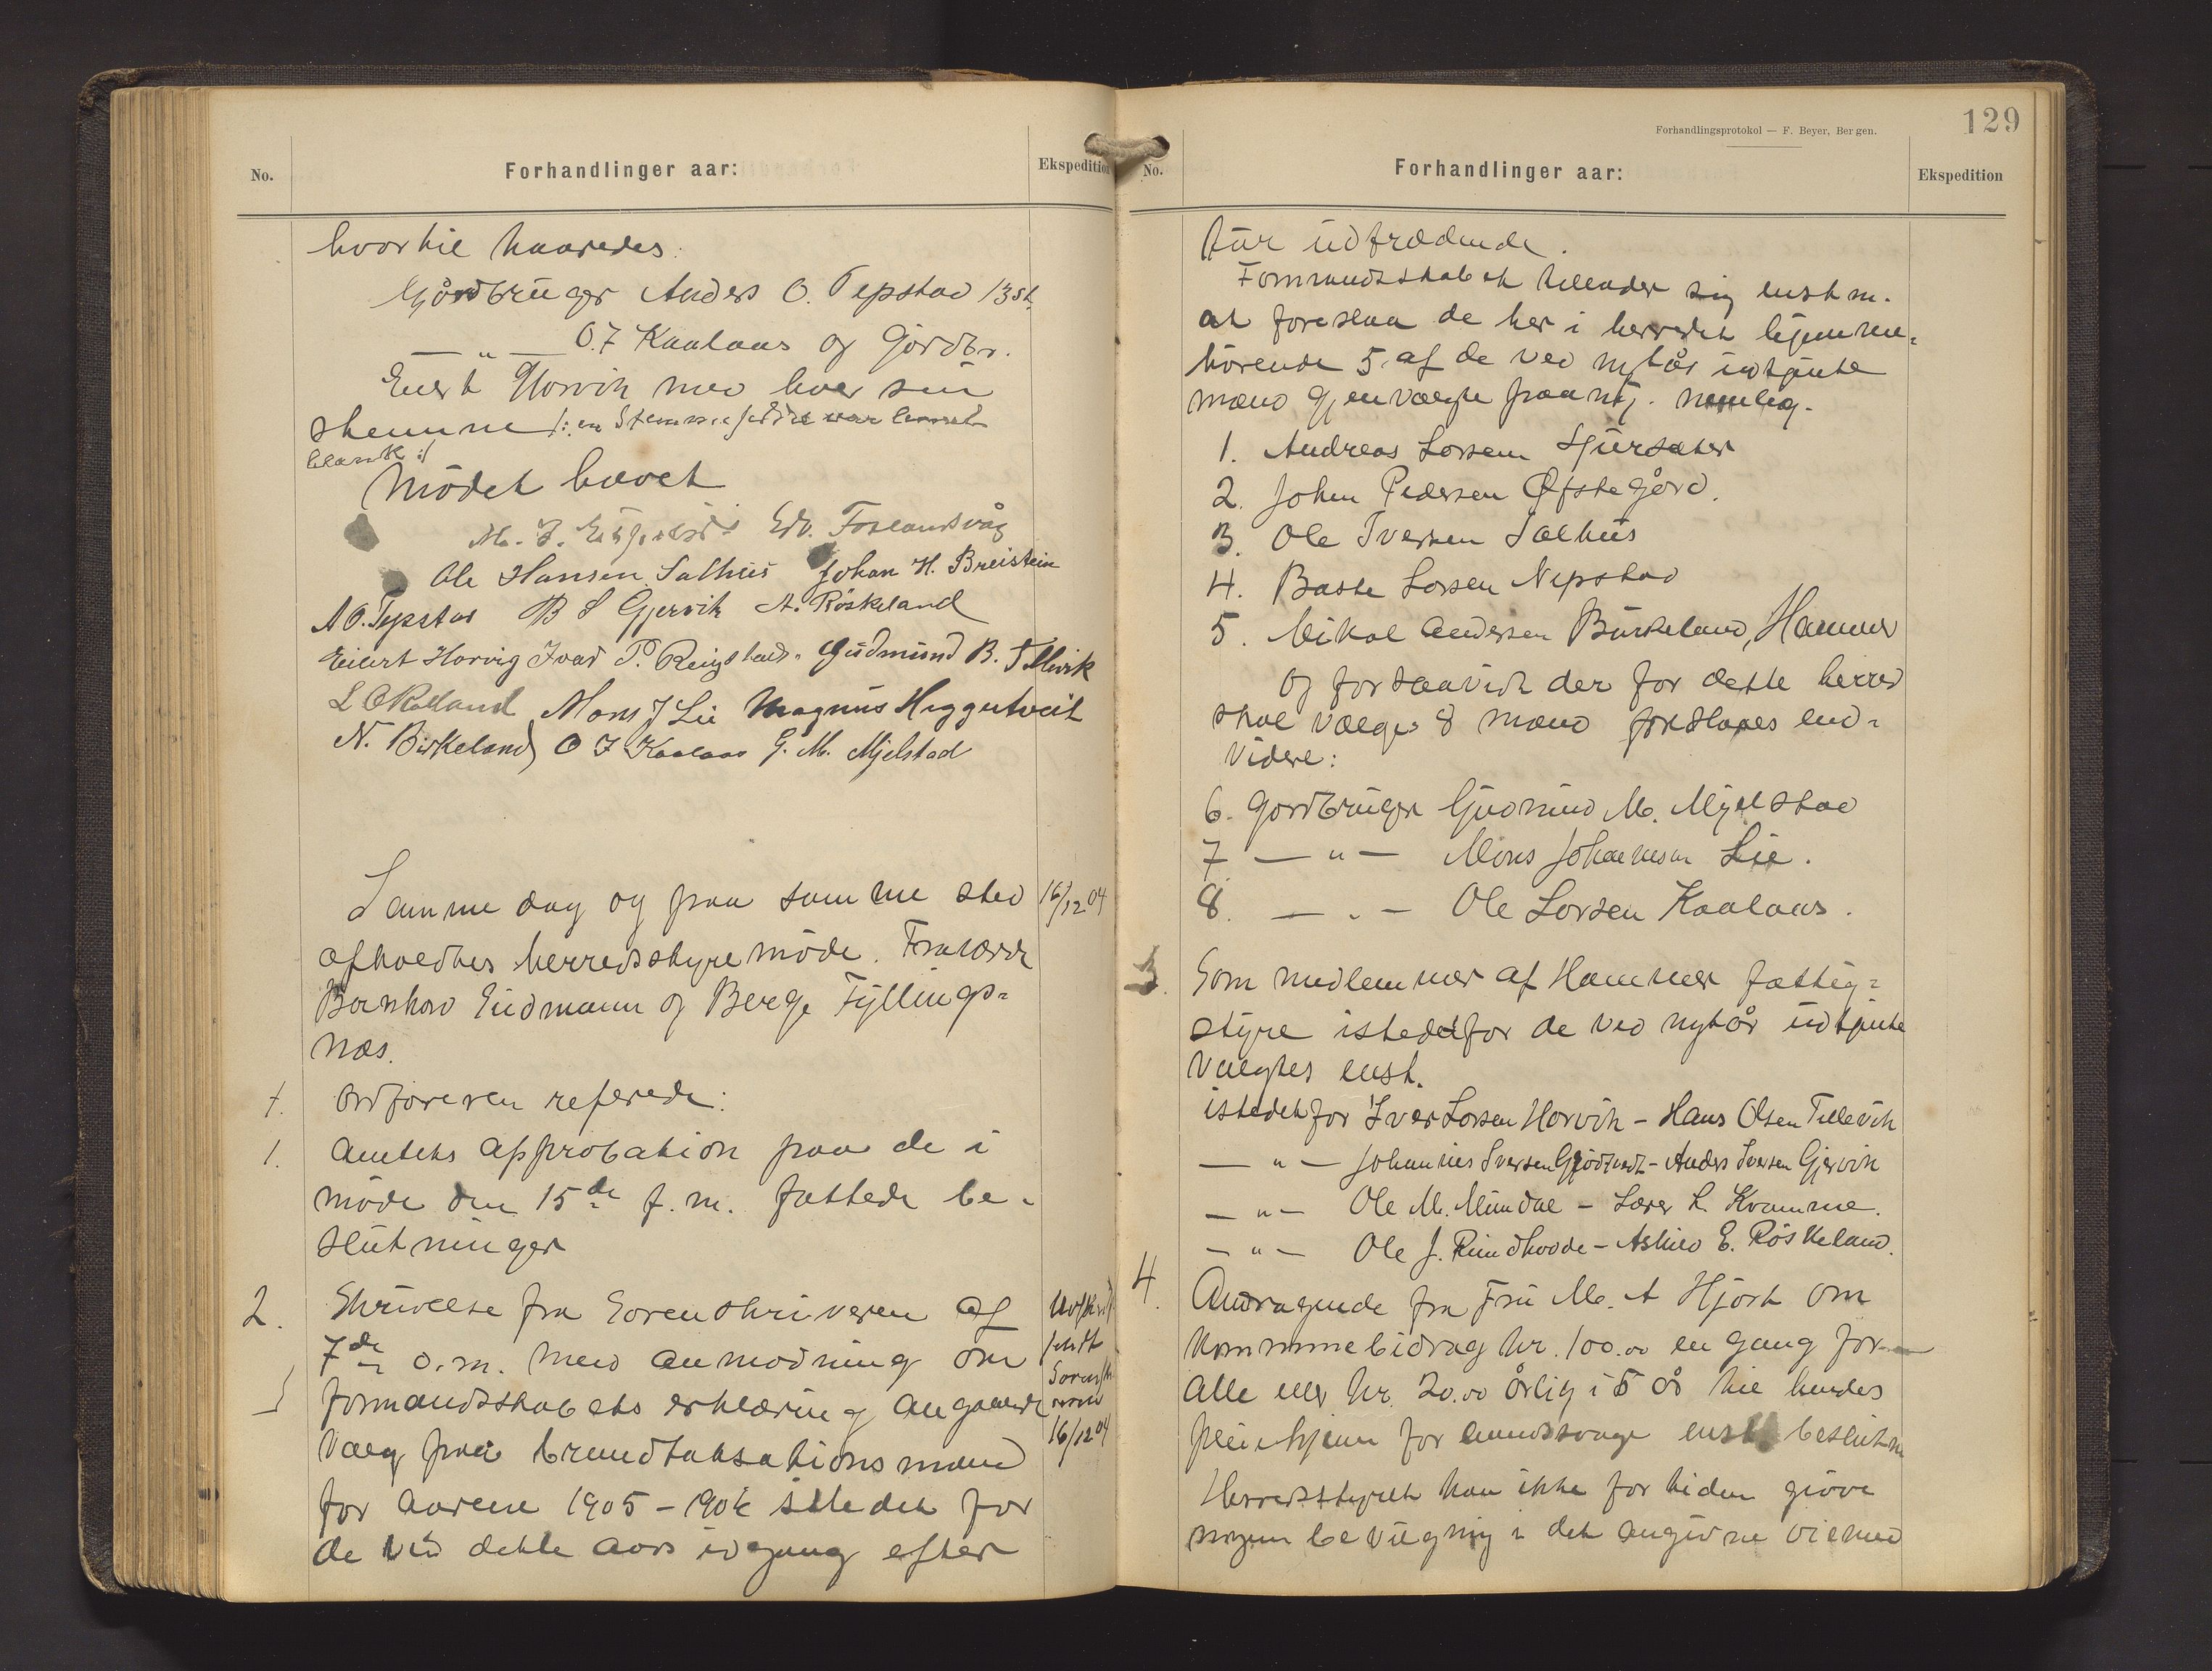 No.
Forhandlinger aar:
Ekspedition
hvortil kaaredes:
Gårdbruger Anders O. Tepstad 13 st.
— " — O. J Kaalaas og Gårdbr.
Eiert Horvik med hver sin
stemme /: en Stemmeseddel var levert
blank :/
Mödet hævet
Edv. Foslandsvåg
Ole Hansen Salhus Johan H. Breistein
A O. Tepstad B S Gjervik A. Röskeland
Eiert Horvig Ivar P. Reigstad. Gudmund B. Tellevik
L O Rolland Mons J Lie Magnus Heggertveit
N. Birkeland O J Kaalaas G. M. Mjelstad
Samme dag og paa samme sted
16/12 04
afholdtes herredsstyremöde. Fraværende
Bernhard Eidmann og Berge Fyllings-
næs.
1. Ordföreren referede:
1. Amtets approbation paa de i
möde den 15de f. m. fattede be-
slutninger
2. Skrivelse fra Sorenskriveren af
7de d. m. med anmodning om
formandsskabets erklæring angaaende
valg paa brandtaksationsmænd
for aarene 1905 – 1906 istedet for
de ved dette aars udgang efter
Udskrift
sendt
Sorenskr
16/12 04
129
Forhandlingsprotokol — F. Beyer, Bergen.
No.
Forhandlinger aar:
Ekspedition
tur udtrædende.
Formandsskabet tillader sig enst m.
at foreslaa de her i herredet hjemme-
hörende 5 af de ved nytår udtjente
mænd gjenvalgte paa ny. nemlig.
1. Andreas Larsen Hjursæter
2. Johan Pedersen Øfstegård.
3. Ole Iversen Salhus
4. Baste Larsen Nepstad
5. Nikol Andersen Birkeland, Hammer
og forsaavidt der for dette herred
skal vælges 8 mænd foreslaaes end-
videre:
6. Gårdbruger Gudmund M. Mjelstad
7 — " — Mons Johannesen Lie.
8. — " — Ole Larsen Kaalaas.
3. Som medlemmer af Hammer fattig-
styre istedetfor de ved nytår udtjente
valgtes enst.
istedetfor Iver Larsen Horvik – Hans Olsen Tellevik
— " — Johannes Iversen Gjödtvedt – Anders Iversen Gjervik
— " — Ole M. Mundal – Lærer L. Kvamme.
— " — Ole J. Rundhovde – Askild E. Röskeland.
4. Andragende fra Fru M. A Hjort om
kommunebidrag kr. 100.00 en gang for
alle eller kr. 20.00 årlig i 5 år til hendes
pleiehjem for aandssvage enst. beslutn
Herredsstyret kan ikke for tiden give
nogen bevilgning i det angivne öiemed